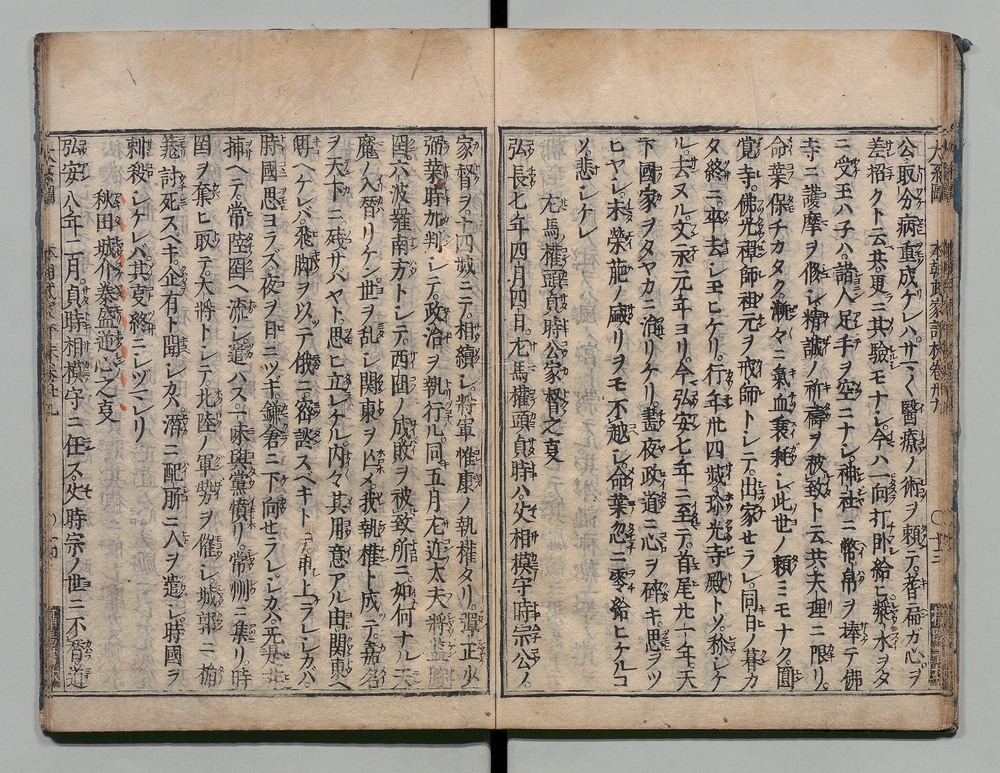 公ヲ取分病重成ケレハサマ〱醫療ノ術ヲ頼テ者扁ガ心ヲ
差招クト云共更ニ其驗モナシ今ハ一向打臥給ヒ漿水ヲタ
ニ受玉ハ子ハ諸人足手ヲ空ニナシ神社ニ幣帛ヲ捧テ佛
寺ニ護摩ヲ修シ精誠ノ祈禱ヲ被致ト云共天理ニ限リ
命葉保チカタク漸々ニ氣血衰耗シ此世ノ頼ミモナク圓
覚寺佛光禪師祖元ヲ戒師トシテ出家セラレ同日ノ暮カ
タ終ニ卒去シ玉ヒケリ行年卅四歳珎光寺殿トソ称シケ
ル去ヌル文永元年ヨリ今弘安七年ニ至テ首尾廿一年天
下國家ヲタヤカニ治リケリ晝夜政道ニ心ヲ碎キ思ヲツ
ヒヤシ未榮葹ノ盛リヲモ不越シ命葉忽ニ零給ヒケルコ
ソ悲シケレ
左馬權頭貞時公家督之叓
弘長七年四月四日左馬權頭貞時ハ父相模守時宗公ノ
家督ヲ十四歳ニテ相續シ將軍惟康ノ執權タリ彈正少
弼業時加判シテ政治ヲ執行ル同五月左近太夫將監
國六波羅南方トシテ西國ノ成敗ヲ被致所ニ如何ナル天
魔ノ入替リケン世ヲ乱シ関東ヲ亡メ我執權ト成テ嘉名
ヲ天下ニ殘サバヤト思ヒ立レケル内々其用意アル由関東ヘ
聞ヘケレバ飛脚ヲ以テ俄ニ可談スベキト申上ラレシカハ
時國思ヨラズ夜ヲ日ニツギ鎌倉ニ下向セラレシカ無是非
捕ヘテ常陸國ヘ流シ遣ハス一味與黨憤リ常州ニ集リ時
國ヲ奪ヒ取テ大將トシテ北陸ノ軍勢ヲ催シ城郭ニ楯
篭討死スベキ企有ト聞シカハ潜ニ配所ニ人ヲ遣シ時國ヲ
刺殺シケレバ其叓終ニシヅマレリ
秋田城介泰盛逆心之叓
弘安八年二月貞時相模守ニ任ス父時宗ノ世ニ不替道